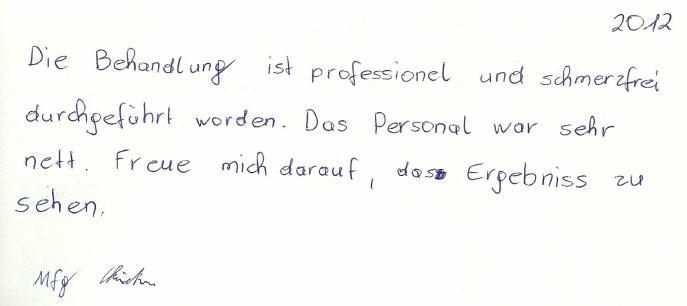 2012
Die Behandlung ist professionel und schmerzfrei
durchgeführt worden. Das Personal war sehr
nett. Freue mich darauf, das Ergebniss zu
sehen.
Mfg